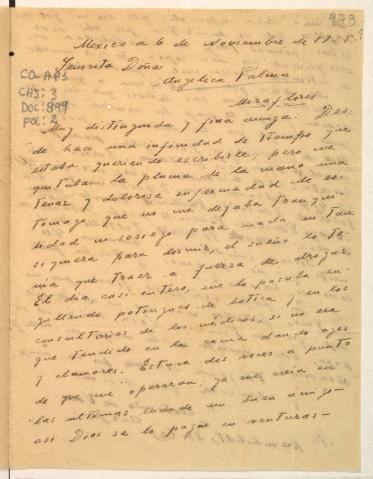 973
Mexico a 6 de Noviembre de 1928.
Señorita Doña
Angelica Palma
Miraflores
CO-AP1
CAJ: 3
DOC: 899
FOL: 2
Muy distinguida y fina amiga: Des-
de hace una infinidad de tiempo que
estaba queriendo escribirle, pero me
quitaban la pluma de la mano una
tenaz y dolorosa enfermedad de es-
tomago que no me dejaba tranqui-
lidad ni sosiego para nada ni tan
siquiera para dormir, el sueño lo te-
nia que traer a fuerza de drogas.
El dia casi entero, me lo pasaba en-
gullendo potingues de botica y en los
consultorios de los médicos, si no era
que tendido en la cama dando ayes
y clamores. Estuve dos veces a punto
de que me operaran, ya me creia en
las ultimas cuando un buen amigo-
asi Dios se lo pague en venturas-